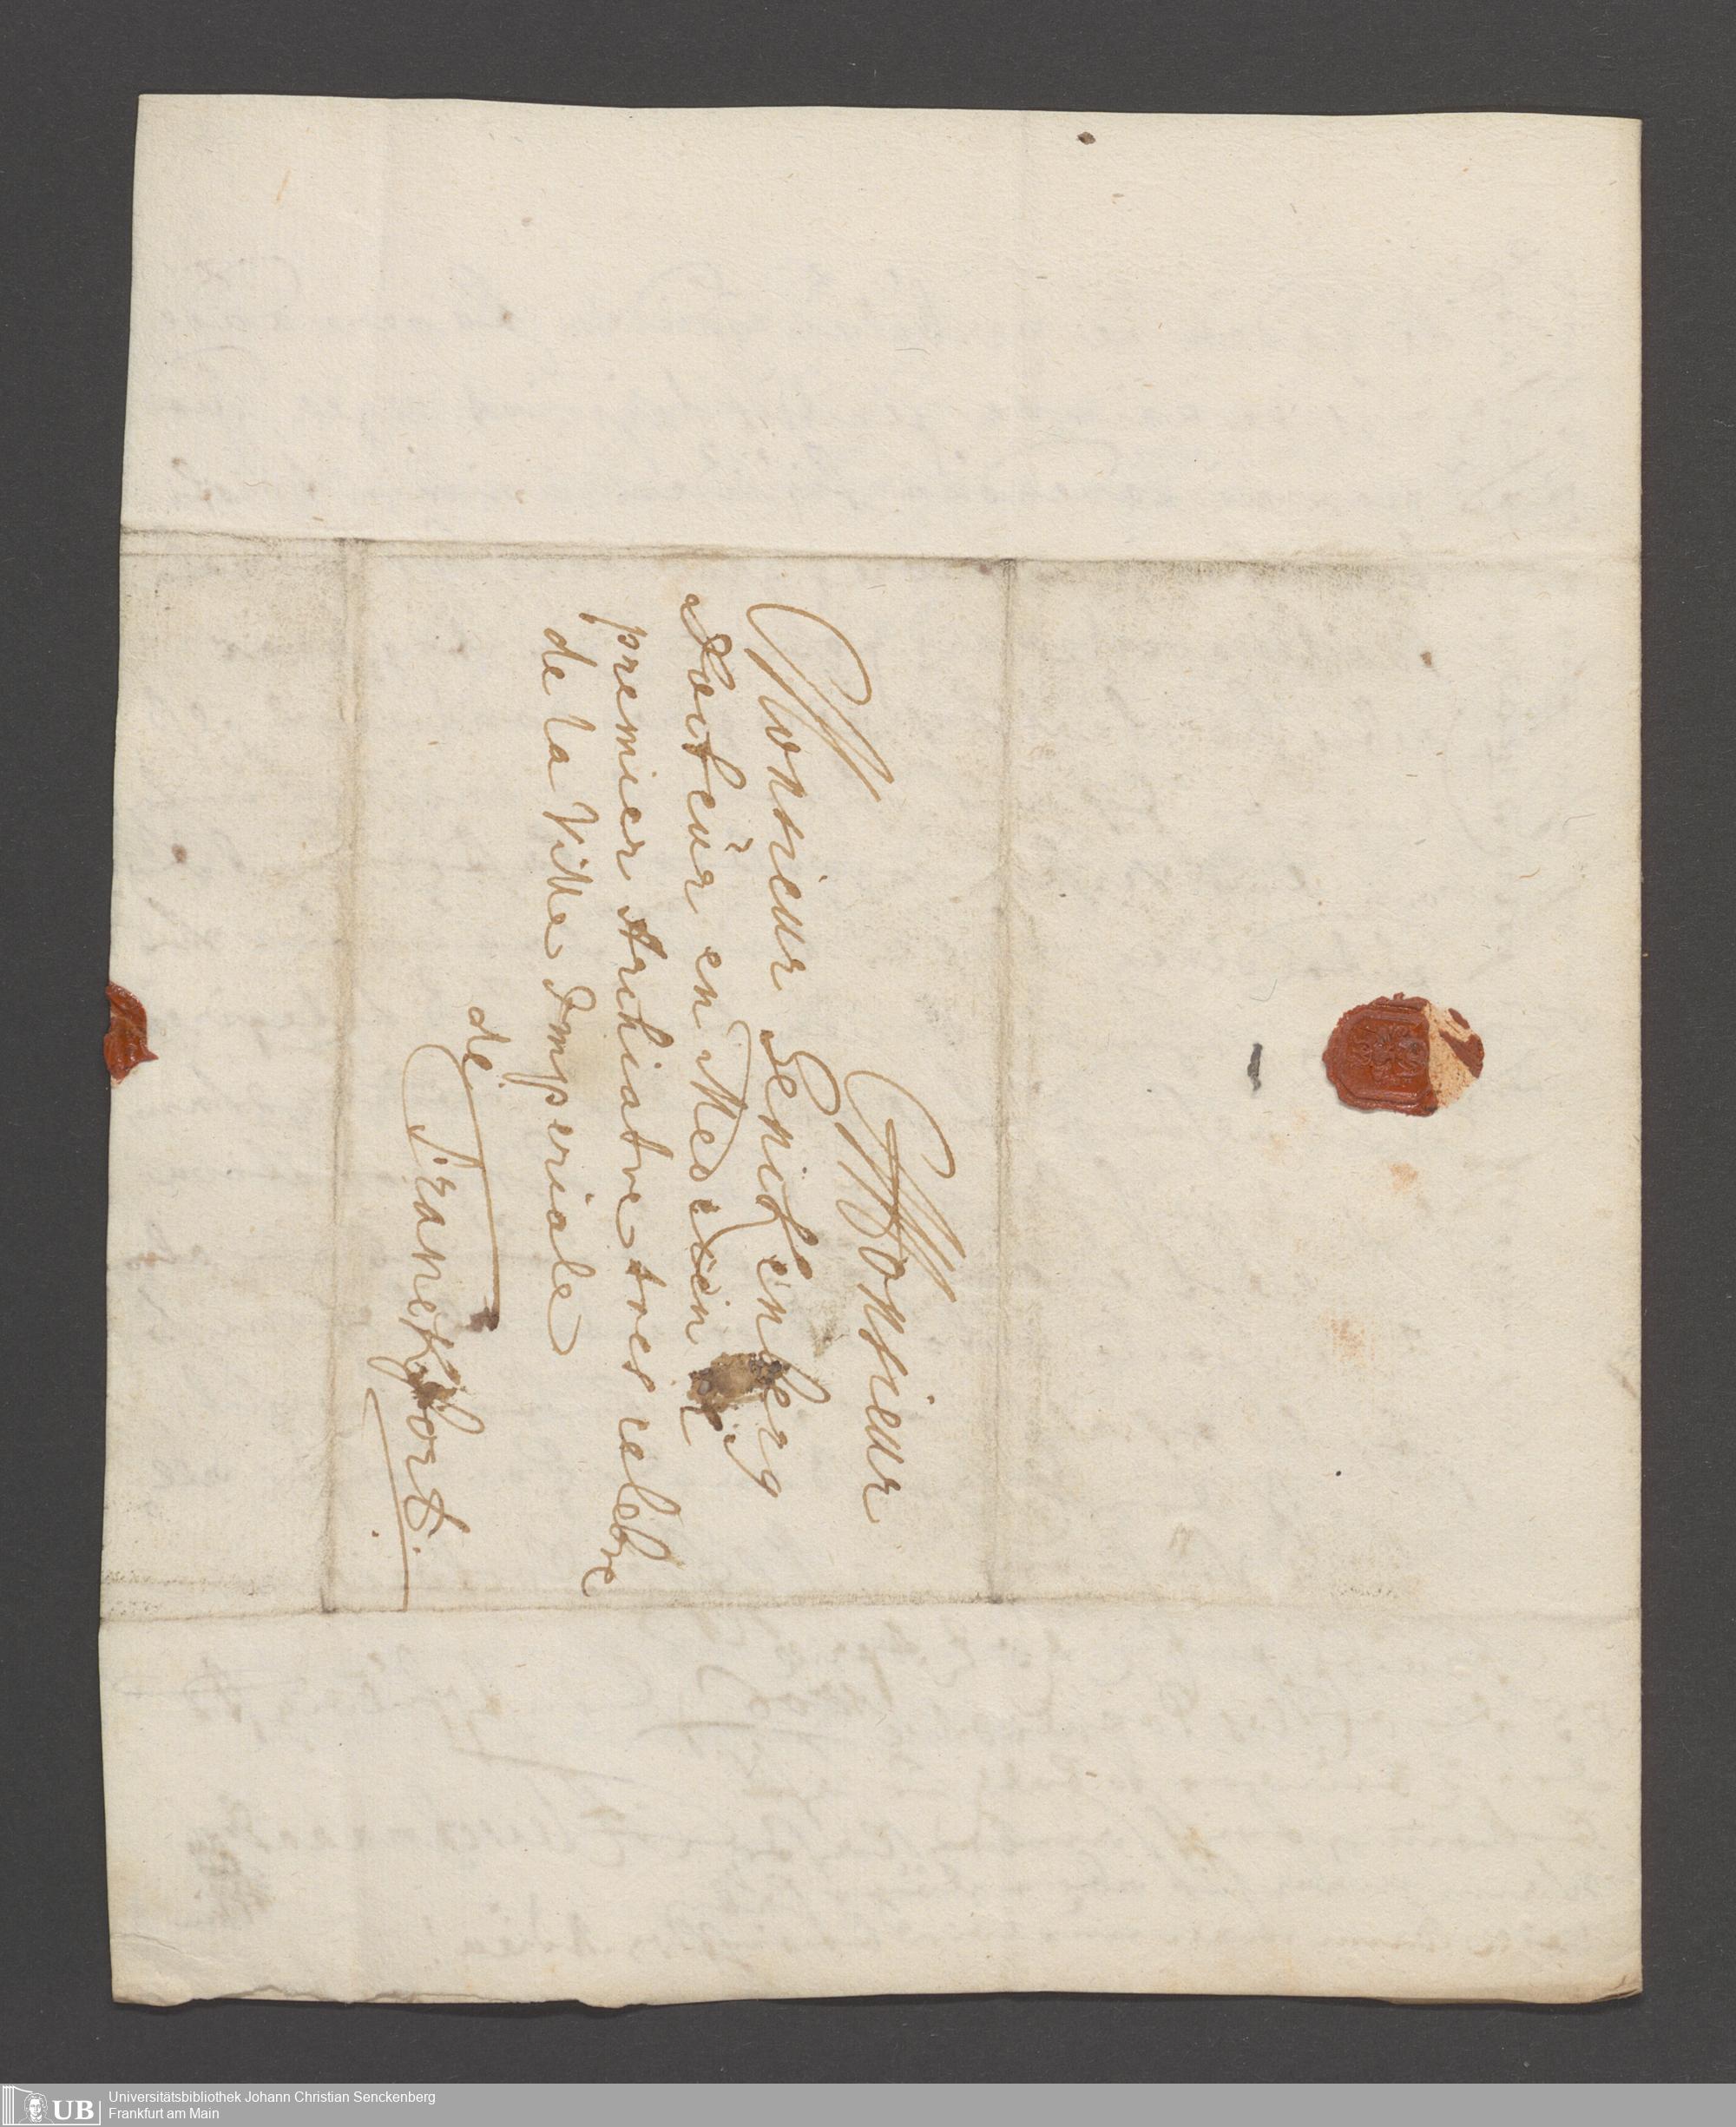 Monsieur
Monsieur Senckenberg
Docteur en Medecin
premier Archiatre tres celebre
de la Ville Imperiale
de
Franckfort.
UB
Universitätsbibliothek Johann Christian Senckenberg
Frankfurt am Main